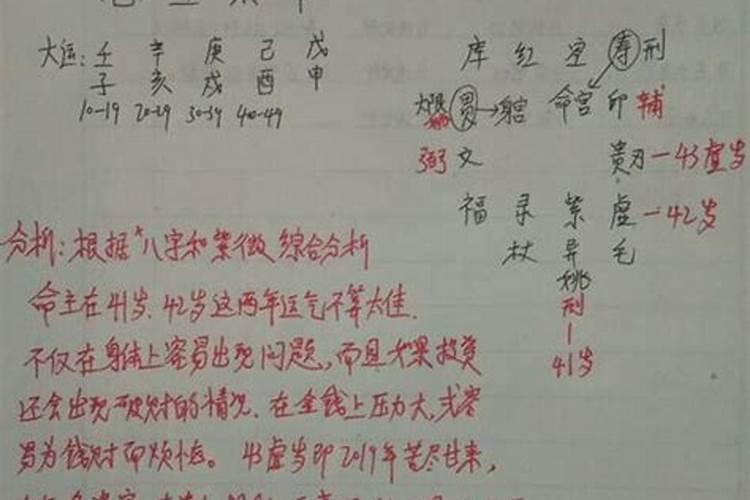 大运: 壬 辛 庚 己 戊
子 亥 戌 酉 申
10-19 20-29 30-39 40-49
库 红 空 寿 刑
贯 → 命宫 印 辅
弼 文 贵刃 - 43虚岁
福 录 紫 虚 - 42岁
杖 异 毛
姚
刑
41岁
分析: 根据"八字和紫微综合分析
命主在41岁、42岁这两年运气不算太佳.
不仅在身体上容易出现问题,而且如果投资
还会出现破财的情况、在金钱上压力大,或容
易为钱财而烦恼。43虚岁即2019年苦尽甘来,